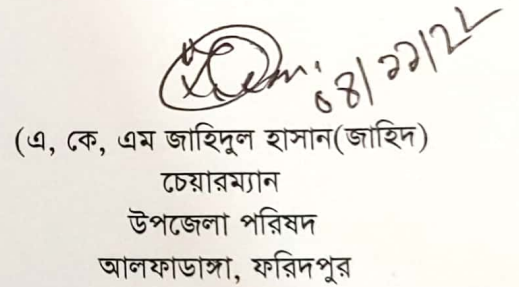 ০৪/১১/২২
(এ, কে, এম জাহিদুল হাসান(জাহিদ)
চেয়ারম্যান
উপজেলা পরিষদ
আলফাডাঙ্গা, ফরিদপুর